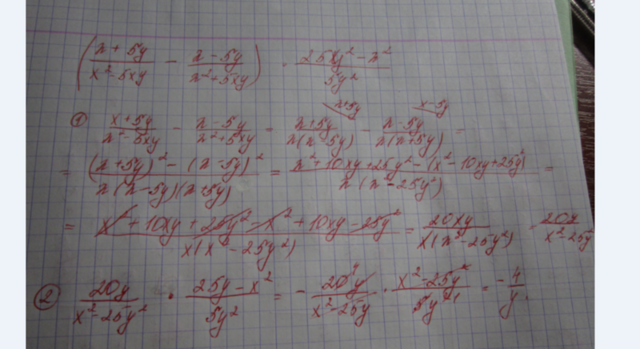 (x + 5y / x² - 5xy - x - 5y / x² + 5xy) · 25y² - x² / 5y²
x+5y x-5y
① x + 5y / x² - 5xy - x - 5y / x² + 5xy = x + 5y / x(x - 5y) - x - 5y / x(x + 5y) =
= (x + 5y)² - (x - 5y)² / x(x - 5y)(x + 5y) = x² + 10xy + 25y² - (x² - 10xy + 25y²) / x(x² - 25y²) =
= x² + 10xy + 25y² - x² + 10xy - 25y² / x(x² - 25y²) = 20xy / x(x² - 25y²) = 20y / x² - 25y
② 20y / x² - 25y² · 25y - x² / 5y² = - 20y / x² - 25y · x² - 25y² / 5y² = - 4 / y